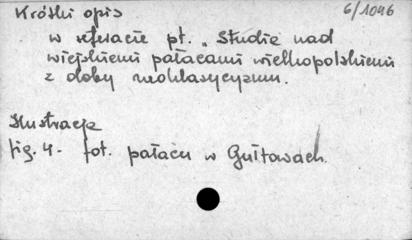 Krótki opis 6/1046
w referacie pt. „Studia nad
wiejskiemi pałacami wielkopolskiemi
z doby neoklasycyzmu.
Ilustracje
fig. 4. fot. pałacu w Gułtowach.